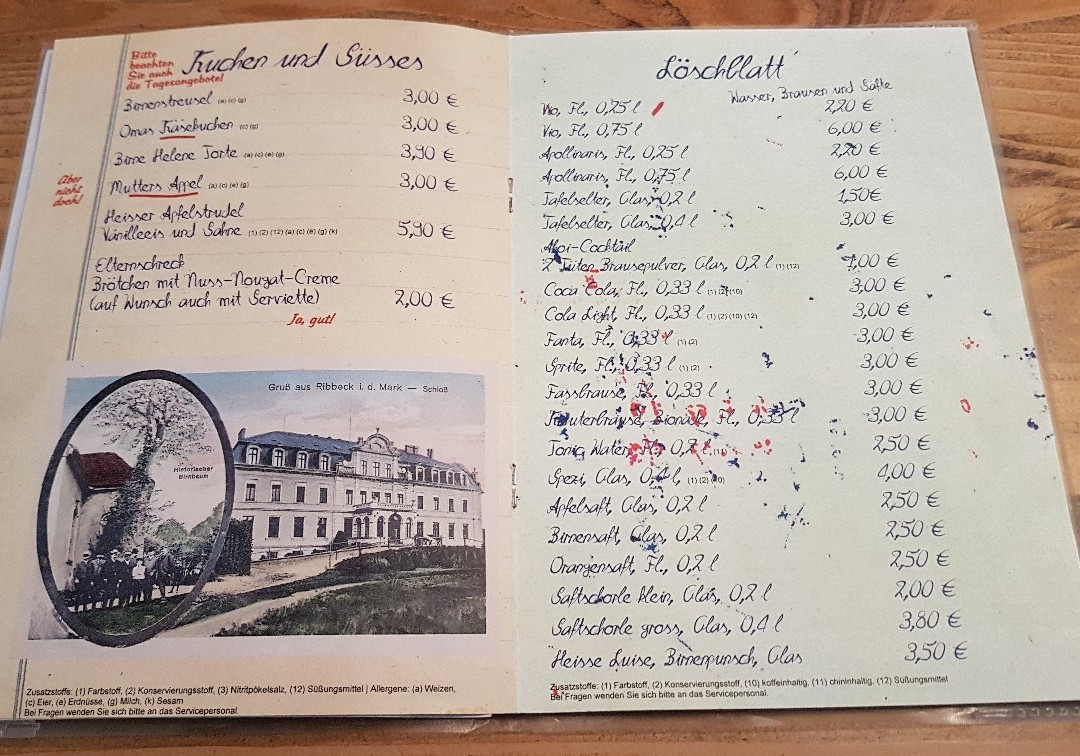 Bitte
beachten
Sie auch
die Tagesangebote!
Kuchen und Süsses
Birnenstreusel (a) (c) (g) 3,00 €
Omas Käsekuchen (c) (g) 3,00 €
Birne Helene Torte (a) (c) (e) (g) 3,90 €
Aber
nicht
doch!
Mutters Appel (a) (c) (e) (g) 3,00 €
Heisser Apfelstrudel
Vanilleeis und Sahne (1) (2) (12) (a) (c) (e) (g) (k) 5,90 €
Elternschreck
Brötchen mit Nuss-Nougat-Creme
(auf Wunsch auch mit Serviette) 2,00 €
Ja, gut!
Gruß aus Ribbeck i. d. Mark — Schloß
Historischer
Birnbaum
Zusatzstoffe: (1) Farbstoff, (2) Konservierungsstoff, (3) Nitritpökelsalz, (12) Süßungsmittel | Allergene: (a) Weizen,
(c) Eier, (e) Erdnüsse, (g) Milch, (k) Sesam
Bei Fragen wenden Sie sich bitte an das Servicepersonal.
Löschblatt
Wasser, Brausen und Säfte
Vio, Fl., 0,25 l 2,20 €
Vio, Fl., 0,75 l 6,00 €
Apollinaris, Fl., 0,25 l 2,20 €
Apollinaris, Fl., 0,75 l 6,00 €
Tafelselter, Glas, 0,2 l 1,50€
Tafelselter, Glas, 0,4 l 3,00 €
Ahoi-Cocktail
2 Tüten Brausepulver, Glas, 0,2 l (1) (12) 1,00 €
Coca Cola, Fl., 0,33 l (1) (2) (10) 3,00 €
Cola Light, Fl., 0,33 l (1) (2) (10) (12) 3,00 €
Fanta, Fl., 0,33 l (1) (2) 3,00 €
Sprite, Fl., 0,33 l (1) (2) 3,00 €
Fassbrause, Fl., 0,33 l 3,00 €
Kräuterbrause, Bionade, Fl., 0,33 l 3,00 €
Tonic Water, Fl., 0,2 l 2,50 €
Spezi, Glas, 0,4 l, (1) (2) (10) 4,00 €
Apfelsaft, Glas, 0,2 l 2,50 €
Birnensaft, Glas, 0,2 l 2,50 €
Orangensaft, Fl., 0,2 l 2,50 €
Saftschorle klein, Glas, 0,2 l 2,00 €
Saftschorle gross, Glas, 0,4 l 3,80 €
Heisse Luise, Birnenpunsch, Glas 3,50 €
Zusatzstoffe: (1) Farbstoff, (2) Konservierungsstoff, (10) koffeinhaltig, (11) chininhaltig, (12) Süßungsmittel
Bei Fragen wenden Sie sich bitte an das Servicepersonal.